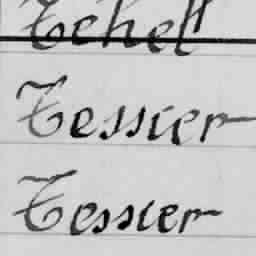 Tehel
Tessier
Tessier